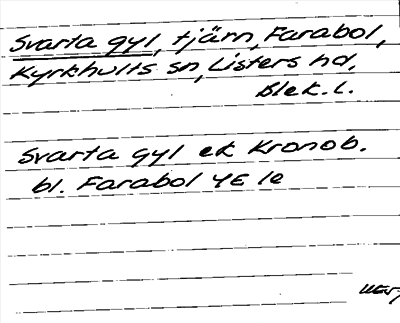 Svarta gyl, tjärn, Farabol,
Kyrkhults sn, Listers hd.
Blek. l.
Svarta gyl ek Kronob.
bl. Farabol 4E 1e